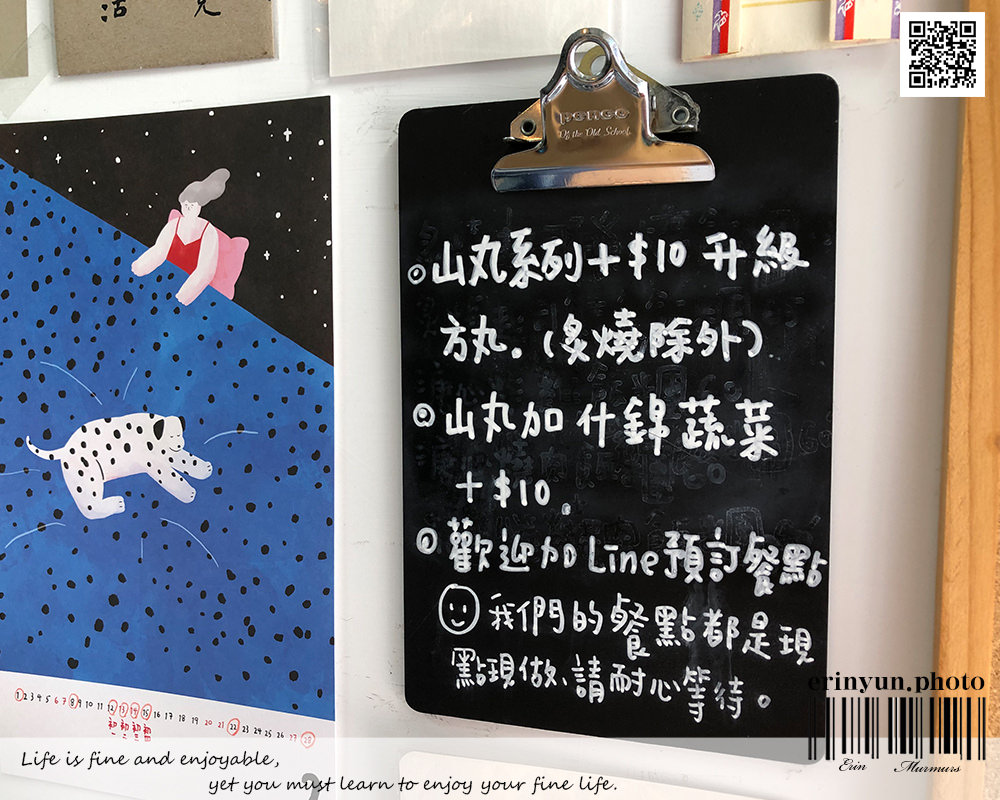 活 見
PENCO
Of the Old School
◎山丸系列＋$10 升級
方丸。(炙燒除外)
◎山丸加什錦蔬菜
＋$10.
◎歡迎加Line預訂餐點
我們的餐點都是現
點現做、請耐心等待。
1 2 3 4 5 6 7 8 9 10 11 12 13 14 15 16 17 18 19 20 21 22 23 24 25 26 27 28
erinyun.photo
Erin Murmurs
Life is fine and enjoyable,
yet you must learn to enjoy your fine life.